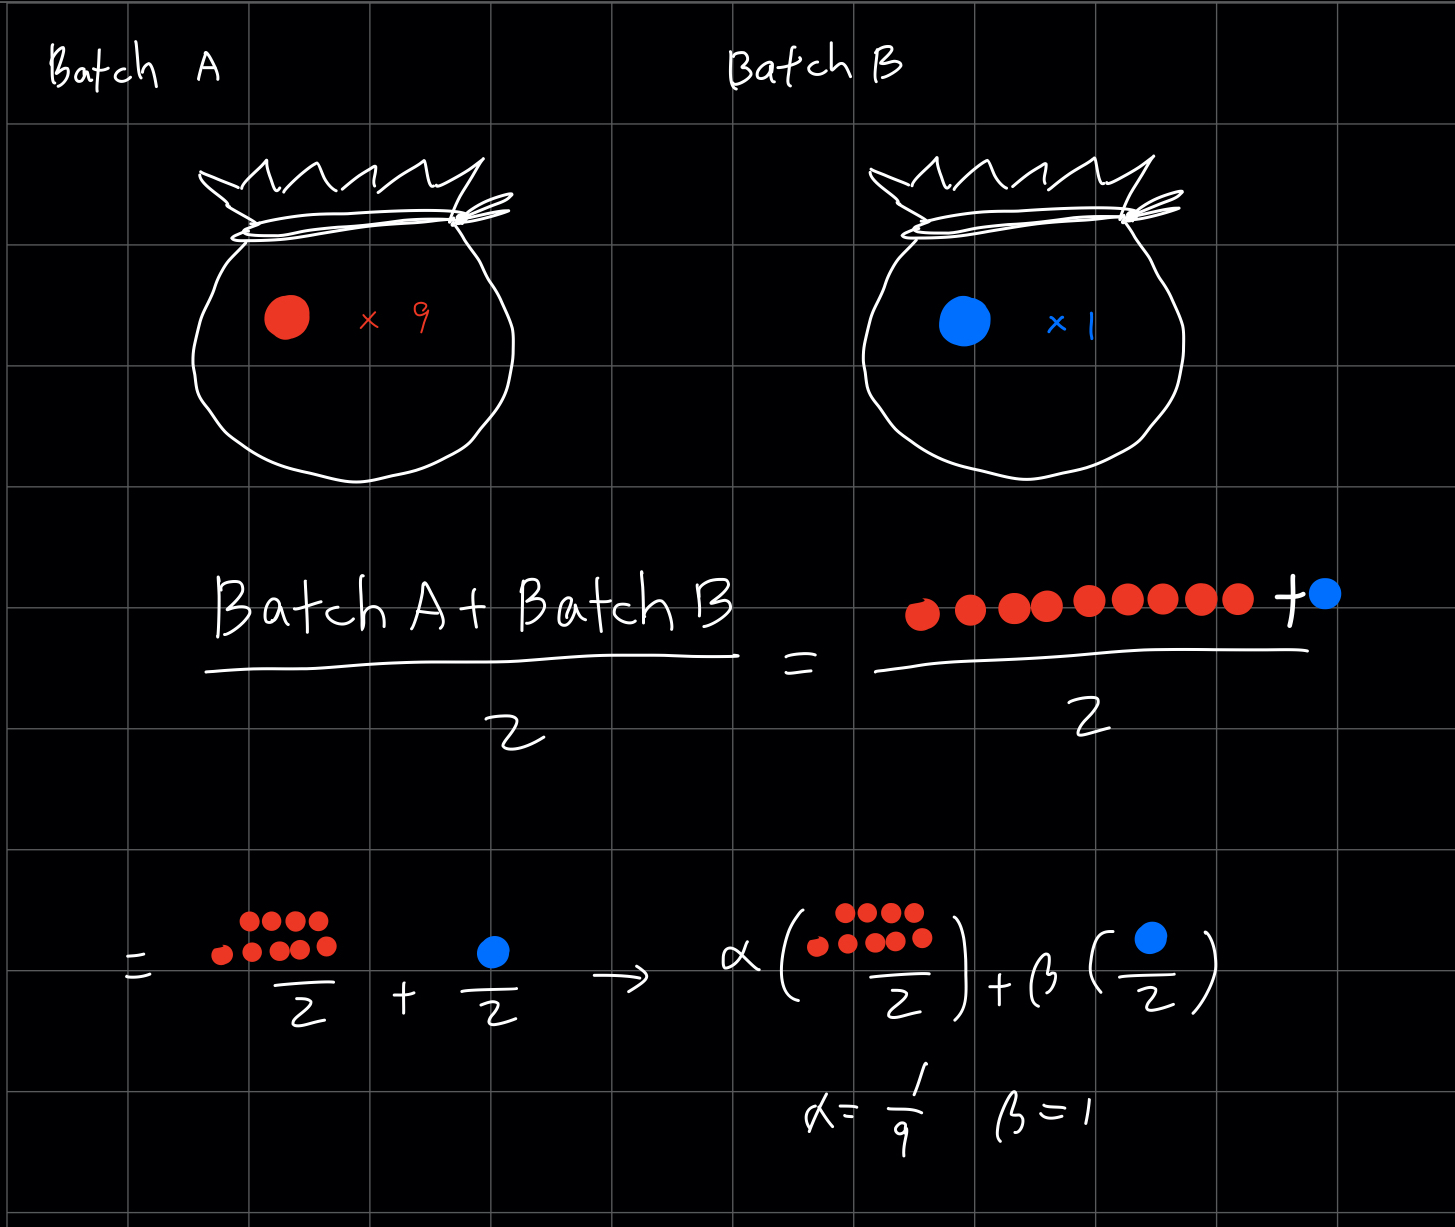 Batch A
Batch B
× 9
× 1
Batch A + Batch B
2
=
+
2
=
2
+
2
→ α ( 2 ) + β ( 2 )
α = 1/9 β = 1